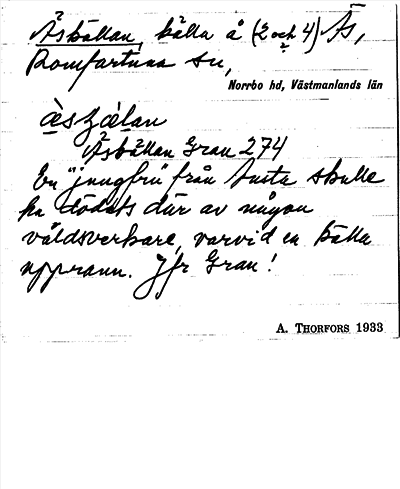 Åskällan, källa å (2 och 4) Ås,
Romfartuna sn,
Norrbo hd, Västmanlands län
Åskällan Grau 274
En "jungfru" från Austa skulle
ha dödats där av någon
våldsverkare, varvid en källa
upprann. Jfr Grau!
A. THORFORS 1933